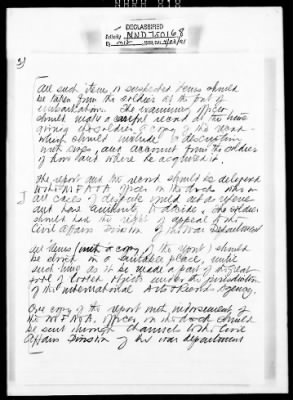 DECLASSIFIED
Authority NND 750168
2)
All such items or suspected items should
be taken from the soldier at the port of
embarkation. The examining officer
should make a careful record at the time
giving the soldier a copy of the record
which should include a description
and account from the soldier
of how and where he acquired it.
The report and the record should be delivered
to the MFA+A officer on the docks who in
all cases of dispute would act as
and have authority to decide. The soldier
should have the right of appeal to the
Civil Affairs Division of the War Department
All items (with a copy of the report) should
be stored in a suitable place, until
such time as it be made a part of the great
pool of looted objects under the jurisdiction
of the international Agency.
One copy of the report with indorsement of
the MFA+A Officer on the dock should
be sent through channels to the Civil
Affairs Division of the War Department